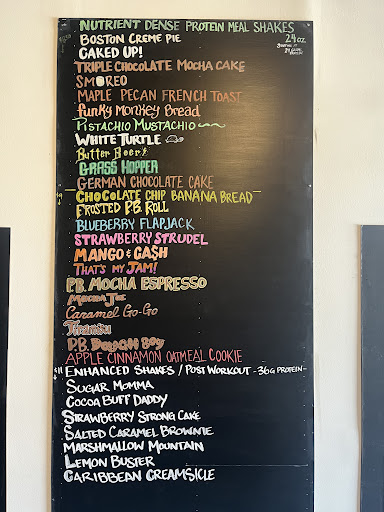 NUTRIENT DENSE PROTEIN MEAL SHAKES
24oz
BOSTON CREME PIE
CAKED UP!
TRIPLE CHOCOLATE MOCHA CAKE
SMOREO
MAPLE PECAN FRENCH TOAST
Funky Monkey Bread
PISTACHIO MUSTACHIO
WHITE TURTLE
Butter Beer
GRASS HOPPER
GERMAN CHOCOLATE CAKE
CHOCOLATE CHIP BANANA BREAD
FROSTED P.B. ROLL
BLUEBERRY FLAPJACK
STRAWBERRY STRUDEL
MANGO & CA$H
THAT'S MY JAM!
P.B. MOCHA ESPRESSO
MOCHA JOE
Caramel Go-Go
P.B. DOUGH BOY
APPLE CINNAMON OATMEAL COOKIE
ENHANCED SHAKES / POST WORKOUT -36g PROTEIN-
SUGAR MOMMA
COCOA BUFF DADDY
STRAWBERRY STRONG CAKE
SALTED CARAMEL BROWNIE
MARSHMALLOW MOUNTAIN
LEMON BUSTER
CARIBBEAN CREAMSICLE